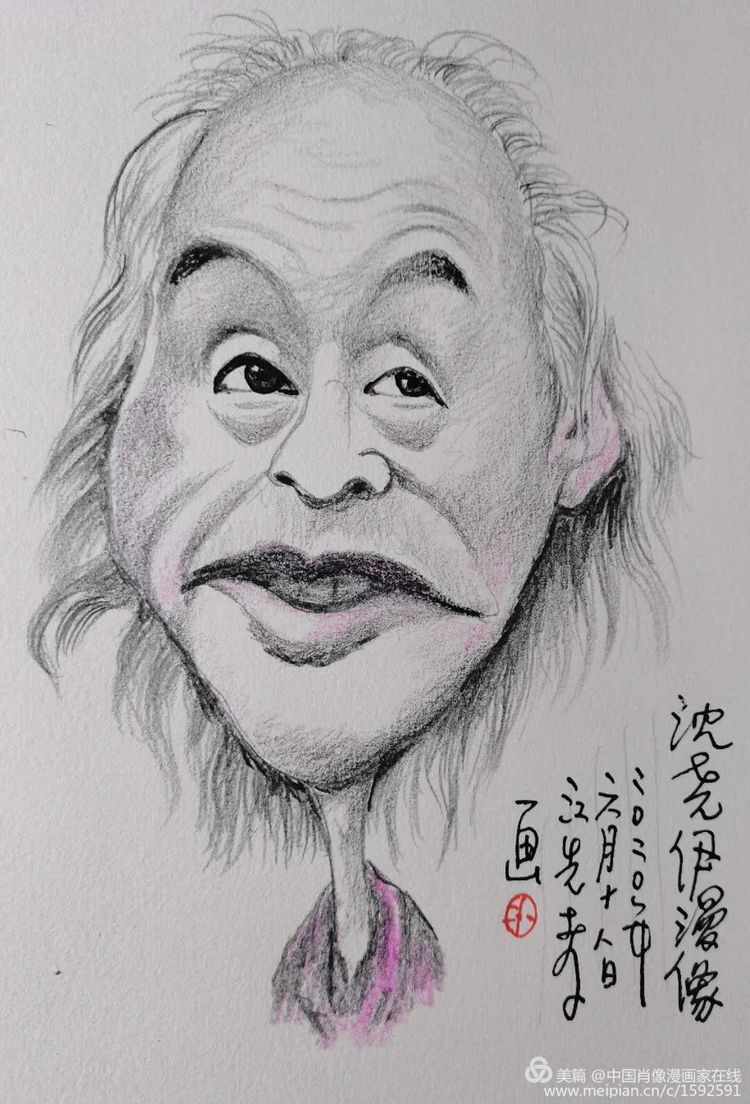 沈尧伊漫像
二〇二〇年
六月十八日
江先春
画
美篇 @中国肖像漫画家在线
www.meipian.cn/c/1592591